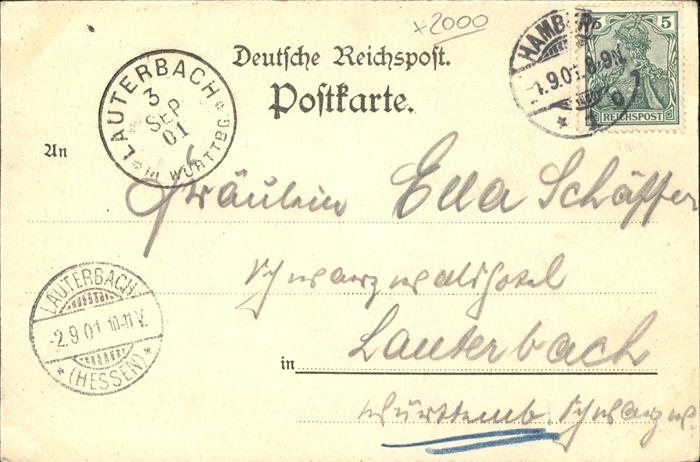 +2000
Deutsche Reichspost.
Postkarte.
LAUTERBACH
3
SEP
01
in WÜRTTBG.
HAMBURG
1.9.01. 8-9N.
5
5
REICHSPOST
An
Fräulein Ella Schäffer
Schwarzwaldhotel
LAUTERBACH
-2.9.01 10-11 V.
(HESSEN)
in Lauterbach
Württemb. Schwarzw.